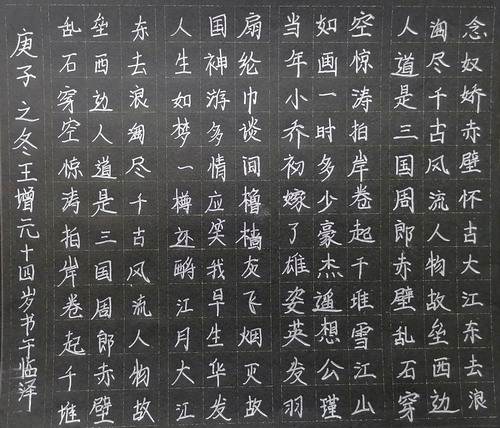 念奴娇赤壁怀古大江东去浪
淘尽千古风流人物故垒西边
人道是三国周郎赤壁乱石穿
空惊涛拍岸卷起千堆雪江山
如画一时多少豪杰遥想公瑾
当年小乔初嫁了雄姿英发羽
扇纶巾谈间橹樯灰飞烟灭故
国神游多情应笑我早生华发
人生如梦一樽还酹江月大江
东去浪淘尽千古风流人物故
垒西边人道是三国周郎赤壁
乱石穿空惊涛拍岸卷起千堆
庚子之冬王增元十四岁书于临泽